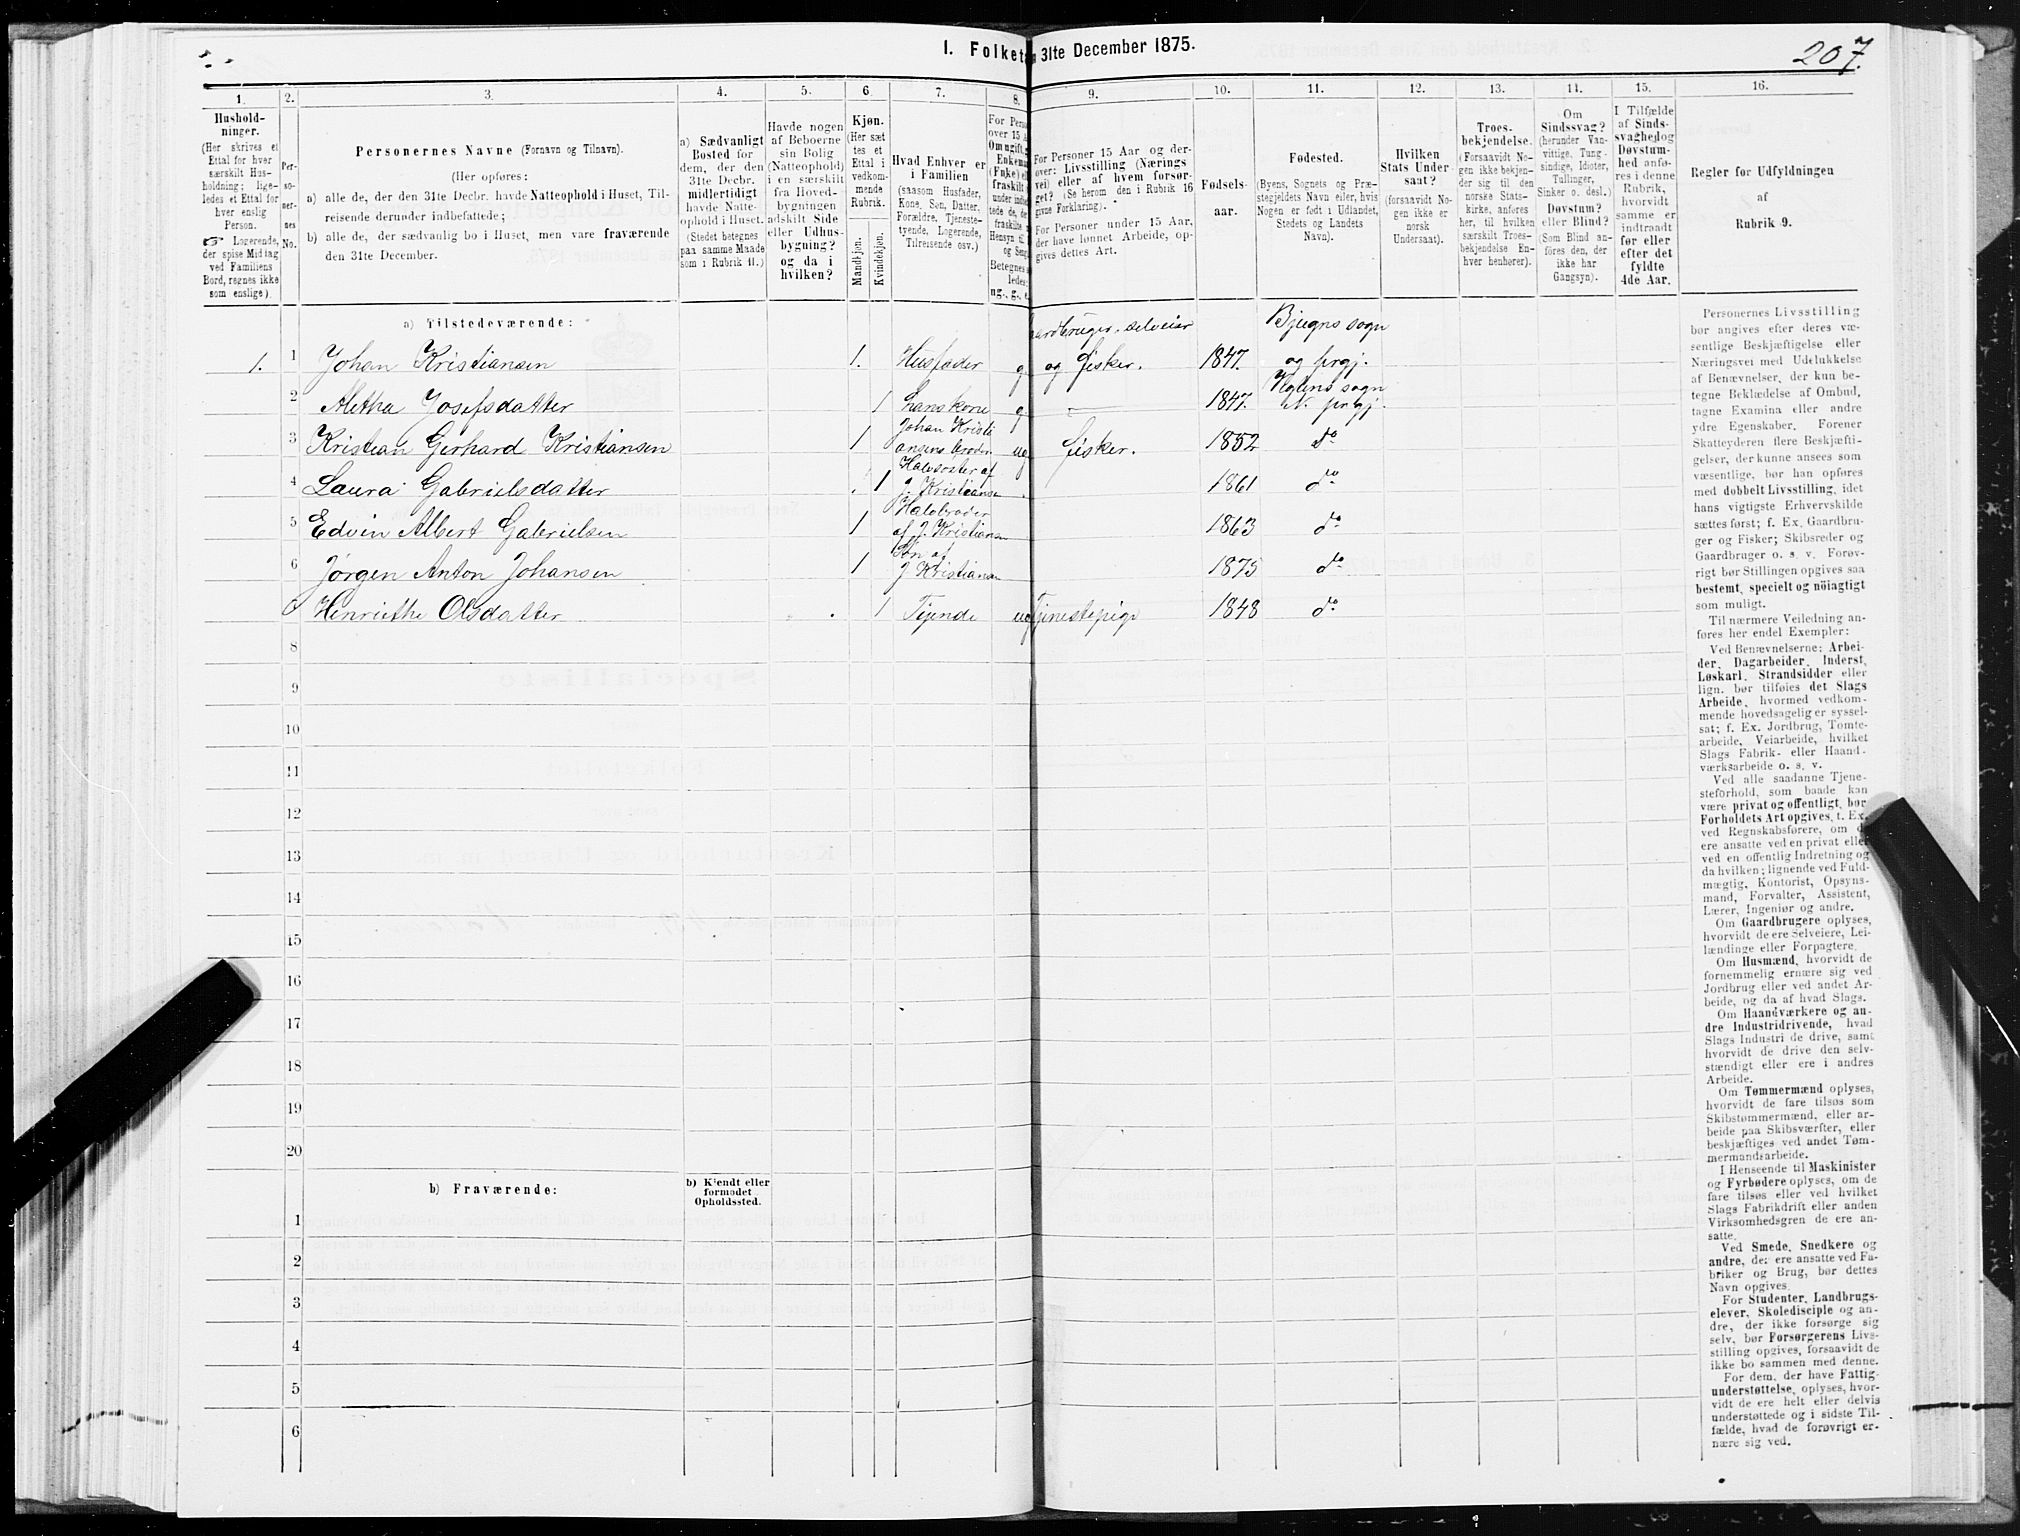 I. Folketæ
n 31te December 1875.
207.
1.
Hushold-
ninger.
(Her skrives et
Ettal for hver
særskilt Hus-
holdning; lige-
ledes et Ettal for
hver enslig
Person.
☞ Logerende,
der spise Middag
ved Familiens
Bord, regnes ikke
som enslige).
2.
Per-
so-
ner-
nes
No.
3.
Personernes Navne (Fornavn og Tilnavn).
(Her opføres:
a) alle de, der den 31te Decbr. havde Natteophold i Huset, Til-
reisende derunder indbefattede;
b) alle de, der sædvanlig bo i Huset, men vare fraværende
den 31te December.
4.
a) Sædvanligt
Bosted for
dem, der den
31te Decbr.
midlertidigt
havde Natte-
ophold i Huset.
(Stedet betegnes
paa samme Maade
som i Rubrik 11.)
5.
Havde nogen
af Beboerne
sin Bolig
(Natteophold)
i en særskilt
fra Hoved-
bygningen
adskilt Side
eller Udhus-
bygning?
og da i
hvilken?
6.
Kjøn.
(Her sæt
tes et
Ettal i
vedkom-
mende
Rubrik.
Mandkjøn.
Kvindekjøn.
7.
Hvad Enhver er
i Familien
(saasom Husfader,
Kone, Søn, Datter,
Forældre, Tjeneste-
tyende, Logerende,
Tilreisende osv.)
8.
For Perso
over 15 A
Om ugift, g
Enkema
(Fnke) el
fraskilt
ug., g., e
9.
For Personer 15 Aar og der-
over: Livsstilling (Nærings
vei) eller af hvem forsør-
get? (Se herom den i Rubrik 16
givne Forklaring).
For Personer under 15 Aar,
der have lønnet Arbeide, op-
gives dettes Art.
10.
Fødsels-
aar.
11.
Fødested.
(Byens, Sognets og Præ-
stegjeldets Navn eller, hvis
Nogen er født i Udlandet,
Stedets og Landets
Navn).
12.
Hvilken
Stats Under
saat?
(forsaavidt No-
gen ikke er
norsk
Undersaat).
13.
Troes-
bekjendelse.
(Forsaavidt No-
gen ikke bekjen-
der sig til den
norske Stats-
kirke, anføres
her, til hvilken
særskilt Troes-
bekjendelse En-
hver henhører).
14.
Om
Sindssvag?
(herunder Van-
vittige, Tung-
sindige, Idioter,
Tullinger,
Sinker o. desl.)
Døvstum?
eller Blind?
(Som Blind an-
føres den, der
ikke har
Gangsyn).
15.
I Tilfælde
af Sinds-
svaghed og
Døvstum-
hed anfø-
res i denne
Rubrik,
hvorvidt
samme er
indtraadt
før eller
efter det
fyldte
4de Aar.
16.
Regler for Udfyldningen
af
Rubrik 9.
a) Tilstedeværende:
ardbruger, selveier Bjugns sogn
1. 1 Johan Kristiansen 1. Husfader g og fisker. 1847. og prgj.
2 Aletha Josefsdatter 1 hans kone g — 1847. N. prgj.
3 Kristian Gerhard Kristiansen 1 Johan Kristi
ansens broder ug fisker. 1852 do
4 Laura Gabrielsdatter 1 Halvsøster af
J. Kristiansen 1861 do
5 Edvin Albert Gabrielsen 1 Halvbroder
af J. Kristiansn 1863 do
6 Jørgen Anton Johansen 1 Søn af
J Kristiansn 1875 do
Henriethe Olsdatter 1 Tyende ug Tjenestepige 1848 do
8
9
10
11
12
13
14
15
16
17
18
19
20
b) Fraværende:
b) Kjendt eller
formodet
Opholdssted.
1
2
3
4
5
6
Personernes Livsstilling
bør angives efter deres væ-
sentlige Beskjæftigelse eller
Næringsvei med Udelukkelse
af Benævnelser, der kun be-
tegne Beklædelse af Ombud,
tagne Examina eller andre
ydre Egenskaber. Forener
Skatteyderen flere Beskjæfti-
gelser, der kunne ansees som
væsentlige, bør han opføres
med dobbelt Livsstilling, idet
hans vigtigste Erhvervskilde
sættes først; f. Ex. Gaardbru-
ger og Fisker; Skibsreder og
Gaardbruger o. s. v. Forøv-
rigt bør Stillingen opgives saa
bestemt, specielt og nöiagtigt
som muligt.
Til nærmere Veiledning an-
føres her endel Exempler:
Ved Benævnelserne: Arbei-
der, Dagarbeider, Inderst,
Løskarl, Strandsidder eller
lign. bør tilføies det Slags
Arbeide, hvormed vedkom-
mende hovedsagelig er syssel-
sat; f. Ex. Jordbrug, Tomte-
arbeide, Veiarbeide, hvilket
Slags Fabrik- eller Haand-
værksarbeide o. s. v.
Ved alle saadanne Tjene-
steforhold, som baade kan
være privat og offentligt, bør
Forholdets Art opgives, t. Ex.
ved Regnskabsførere, om d
ere ansatte ved en privat eller
ved en offentlig Indretning og
da hvilken; lignende ved Fuld-
mægtig, Kontorist, Opsyns-
mand, Forvalter, Assistent,
Lærer, Ingeniør og andre.
Om Gaardbrugere oplyses,
hvorvidt de ere Selveiere, Lei-
lændinge eller Forpagtere.
Om Husmænd, hvorvidt de
fornemmelig ernære sig ved
Jordbrug eller ved andet Ar-
beide, og da af hvad Slags.
Om Haandværkere og an-
dre Industridrivende, hvad
Slags Industri de drive, samt
hvorvidt de drive den selv-
stændigt eller ere i andres
Arbeide.
Om Tømmermænd oplyses,
hvorvidt de fare tilsøs som
Skibstømmermænd, eller ar-
beide paa Skibsværfter, eller
beskjæftiges ved andet Tøm-
mermandsarbeide.
I Henseende til Maskinister
og Fyrbødere oplyses, om de
fare tilsøs eller ved hvilket
Slags Fabrikdrift eller anden
Virksomhedsgren de ere an-
satte.
Ved Smede, Snedkere og
andre, der ere ansatte ved Fa-
briker og Brug, bør dettes
Navn opgives.
For Studenter, Landbrugs-
elever, Skoledisciple og an-
dre, der ikke forsørge sig
selv, bør Forsørgerens Livs-
stilling opgives, forsaavidt de
ikke bo sammen med denne.
For dem, der have Fattig-
understøttelse, oplyses, hvor-
vidt de ere helt eller delvis
understøttede og i sidste Til-
fælde, hvad de forøvrigt er-
nære sig ved.